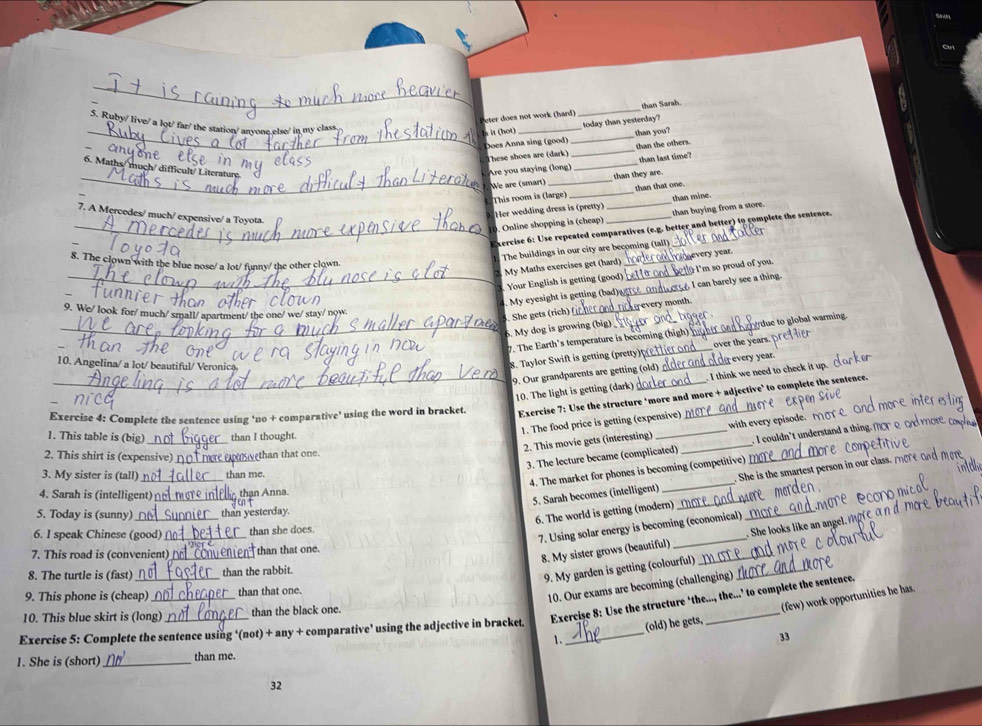 It is raining to much more heavier
5. Ruby/ live/ a lot/ far/ the station/ anyone else/ in my class.
Ruby lives a lot farther from the station
anyone else in my class
6. Maths/ much/ difficult/ Literature.
Maths is much more difficult than Literature
7. A Mercedes/ much/ expensive/ a Toyota.
A mercedes is much more expensive than a
Toyota
8. The clown with the blue nose/ a lot/ funny/ the other clown.
The clown with the blu nose is a lot
funnier than other clown
9. We/ look for/ much/ small/ apartment/ the one/ we/ stay/ now.
We are looking for a much smaller apartment
than the one we ra staying in now
10. Angelina/ a lot/ beautiful/ Veronica.
Angeling is a lot more beautiful than Vero
nica
Exercise 4: Complete the sentence using ‘no + comparative’ using the word in bracket.
1. This table is (big) not bigger than I thought.
2. This shirt is (expensive) not more expensive than that one.
3. My sister is (tall) not taller than me.
4. Sarah is (intelligent) not more intelligent than Anna.
5. Today is (sunny) not sunnier than yesterday.
6. I speak Chinese (good) not better than she does.
7. This road is (convenient) not more convenient than that one.
8. The turtle is (fast) not faster than the rabbit.
9. This phone is (cheap) not cheaper than that one.
10. This blue skirt is (long) not longer than the black one.
Exercise 5: Complete the sentence using ‘(not) + any + comparative’ using the adjective in bracket.
1. She is (short) no than me.
32
Peter does not work (hard) than Sarah.
Is it (hot) today than yesterday?
Does Anna sing (good) than you?
These shoes are (dark) than the others.
Are you staying (long) than last time?
We are (smart) than they are.
This room is (large) than that one.
Her wedding dress is (pretty) than mine.
10. Online shopping is (cheap) than buying from a store.
Exercise 6: Use repeated comparatives (e.g. better and better) to complete the sentence.
1. The buildings in our city are becoming (tall) taller and taller
2. My Maths exercises get (hard) harder and harder every year.
3. Your English is getting (good) better and better I'm so proud of you.
4. My eyesight is getting (bad) worse and worse I can barely see a thing.
5. She gets (rich) richer and richer every month.
6. My dog is growing (big) bigger and bigger.
7. The Earth's temperature is becoming (high) higher and higher due to global warming.
8. Taylor Swift is getting (pretty) prettier and over the years. prettier
9. Our grandparents are getting (old) older and older every year.
10. The light is getting (dark) darker and . I think we need to check it up. darker
Exercise 7: Use the structure ‘more and more + adjective’ to complete the sentence.
1. The food price is getting (expensive) more and more expensive
2. This movie gets (interesting) with every episode. more and more interesting
3. The lecture became (complicated) . I couldn't understand a thing. more and more
4. The market for phones is becoming (competitive) more and more competitive
5. Sarah becomes (intelligent) . She is the smartest person in our class. more and more
6. The world is getting (modern) more and more morden.
7. Using solar energy is becoming (economical) more and more economical
8. My sister grows (beautiful) . She looks like an angel. more and more
9. My garden is getting (colourful) more and more colourful
10. Our exams are becoming (challenging) more and more
Exercise 8: Use the structure ‘the..., the...’ to complete the sentence.
1. The (old) he gets, (few) work opportunities he has.
33
Shift
Ctrl